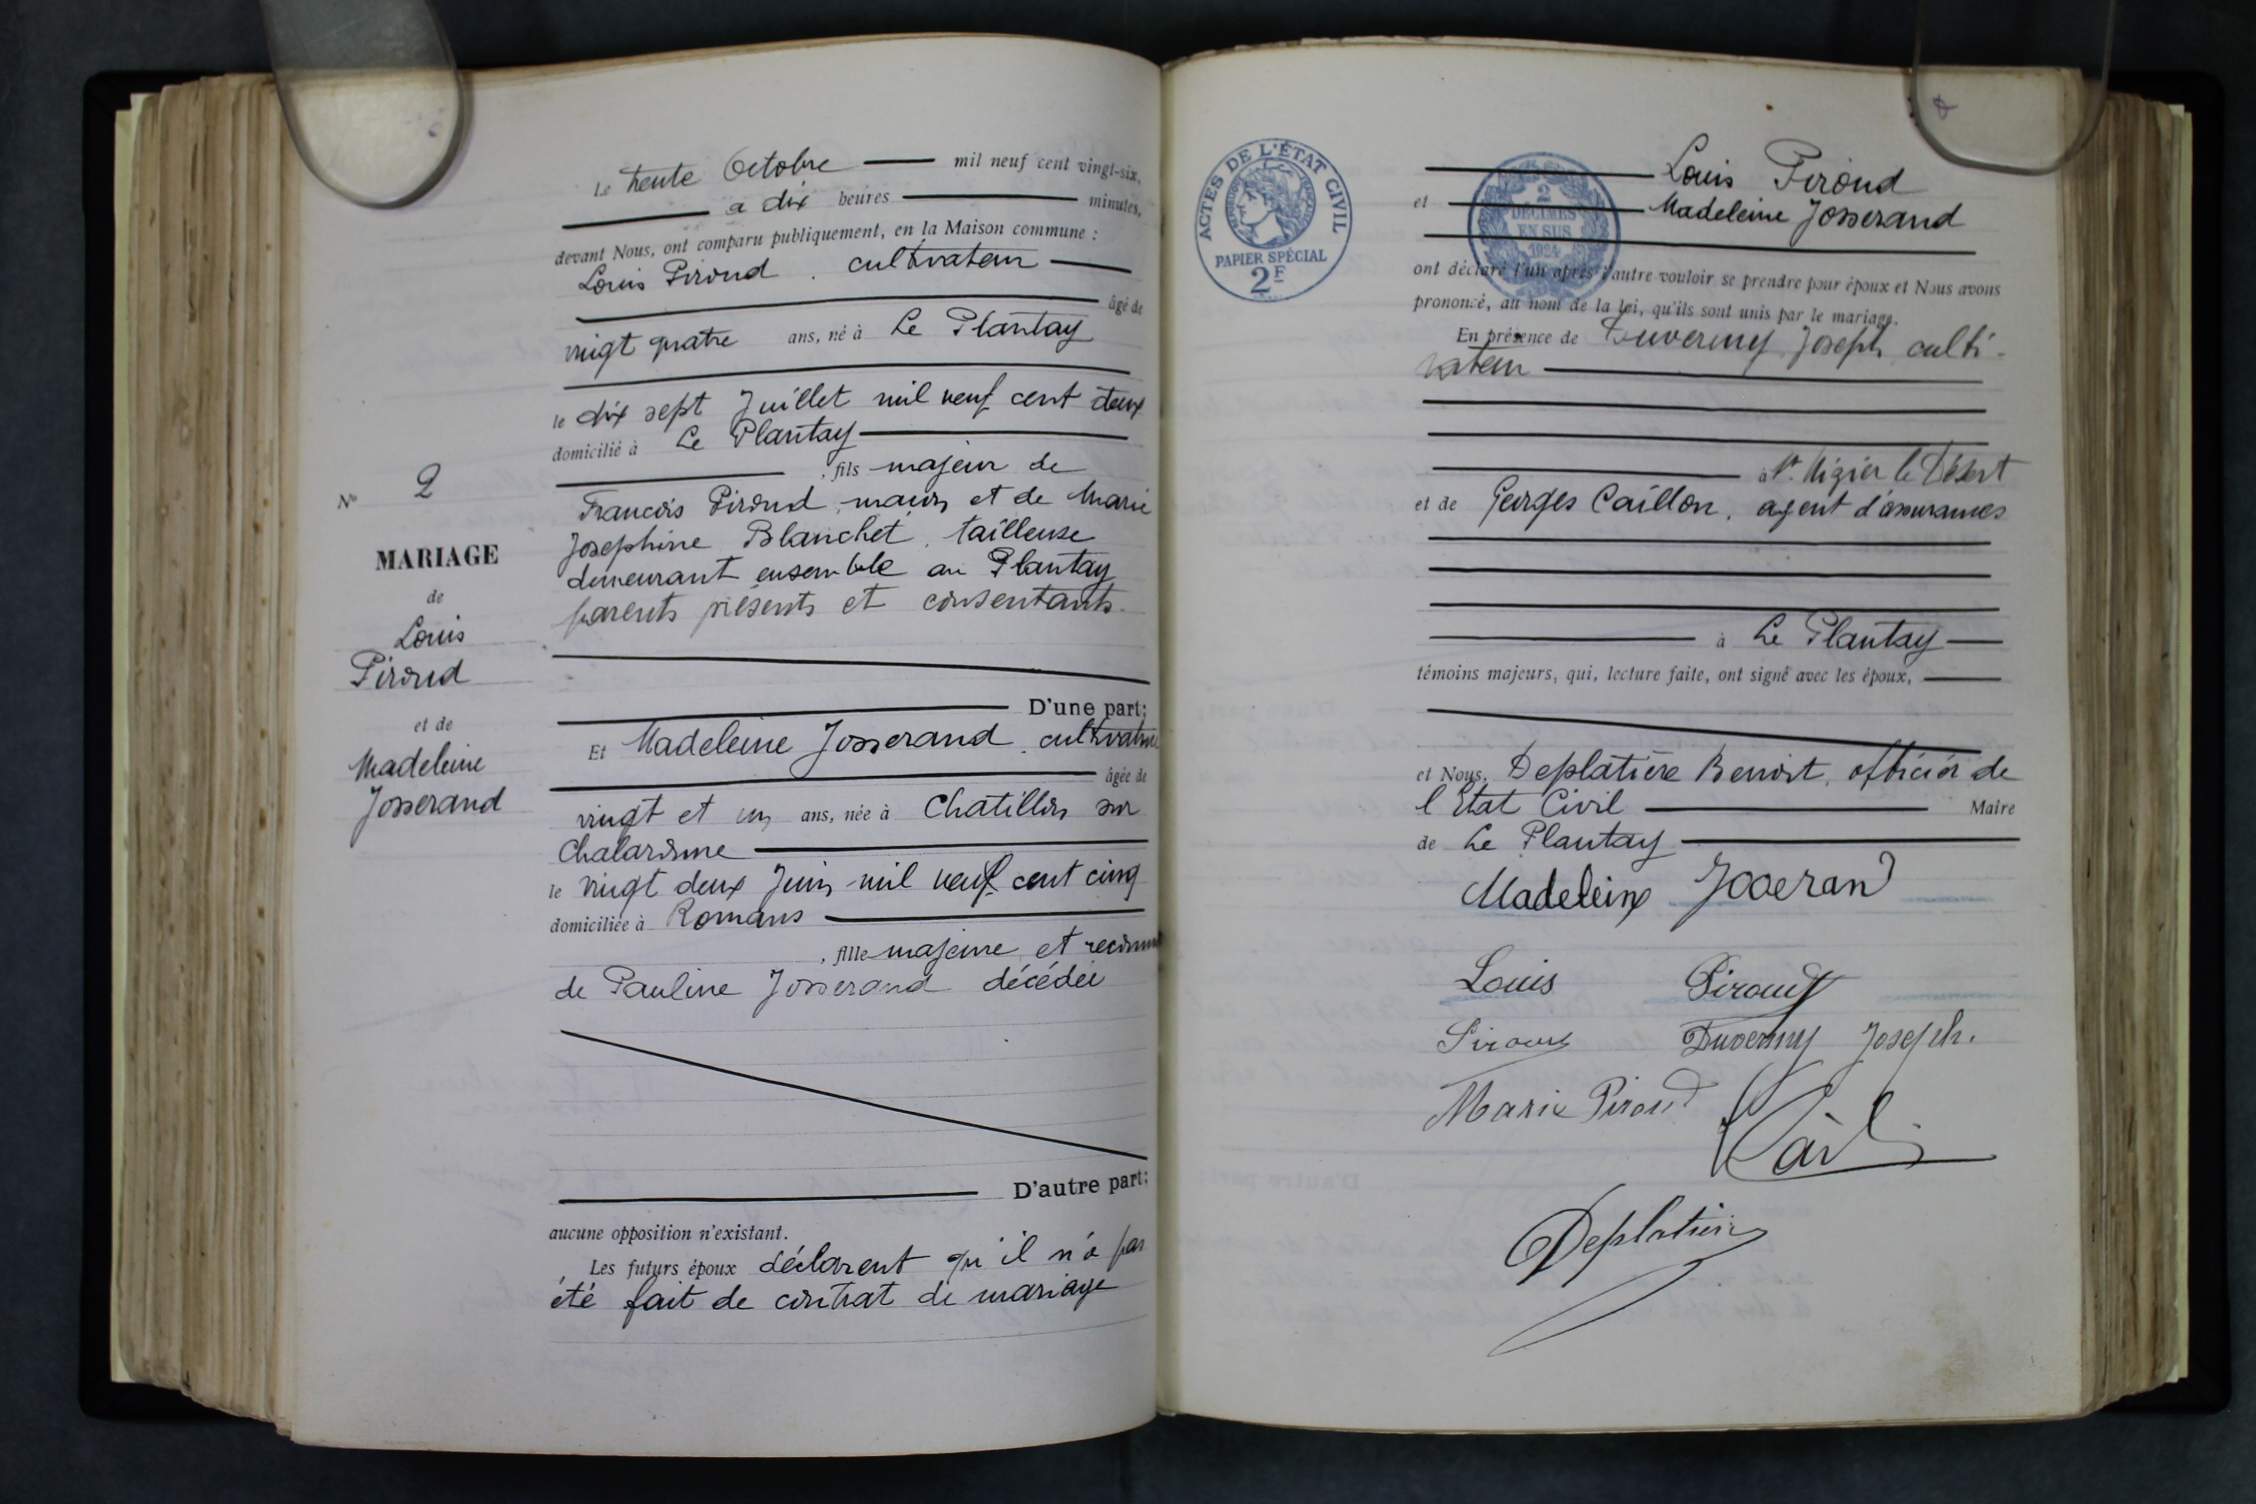 Le trente Octobre mil neuf cent vingt-six,
à dix heures minutes,
devant Nous, ont comparu publiquement, en la Maison commune :
Louis Piroud. cultivateur
âgé de
vingt quatre ans, né à Le Plantay
le dix sept Juillet mil neuf cent deux
domicilié à Le Plantay
, fils majeur de
François Piroud, maçon et de Marie
Josephine Blanchet, tailleuse
demeurant ensemble au Plantay
parents présents et consentants.
D'une part;
Et Madeleine Josserand. cultivatrice
âgée de
vingt et un ans, née à Chatillon sur
Chalaronne
le vingt deux Juin mil neuf cent cinq
domiciliée à Romans
, fille majeure et reconnue
de Pauline Josserand décédée
D'autre part;
aucune opposition n'existant.
Les futurs époux déclarent qu'il n'a pas
été fait de contrat de mariage
N° 2
MARIAGE
de
Louis
Piroud
et de
Madeleine
Josserand
ACTES DE L'ÉTAT CIVIL
PAPIER SPÉCIAL
2F
2
DÉCIMES
EN SUS
1924
Louis Piroud
et Madeleine Josserand
ont déclaré l'un après l'autre vouloir se prendre pour époux et Nous avons
prononcé, au nom de la loi, qu'ils sont unis par le mariage.
En présence de Duverny Joseph culti-
vateur
à St. Nizier le Désert
et de Georges Caillon. agent d'assurances
à Le Plantay
témoins majeurs, qui, lecture faite, ont signé avec les époux,
et Nous, Deplatière Benoit, officier de
l'Etat Civil Maire
de Le Plantay
Madeleine Josserand
Louis Piroud
Piroud Duverny Joseph.
Marie Piroud
Deplatière